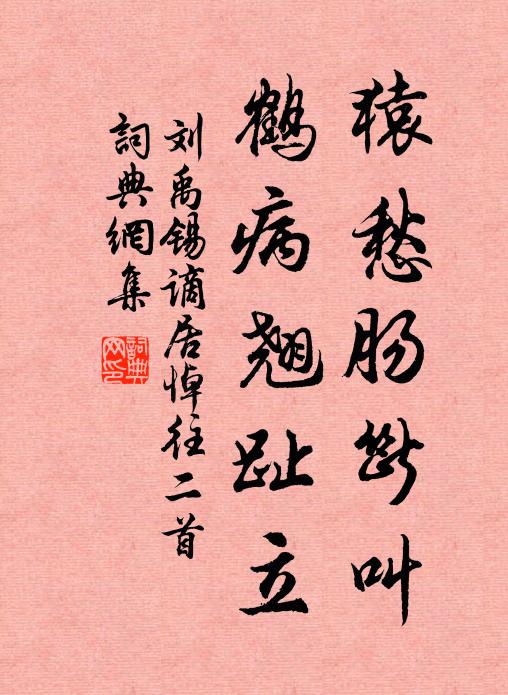 猿愁肠断叫
鹤病翘趾立
刘禹锡谪居悼往二首
詞典網集
詞典网印